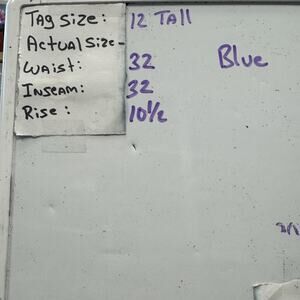 Tag Size: 12 Tall
Actual Size-
Waist: 32 Blue
Inseam: 32
Rise: 10½